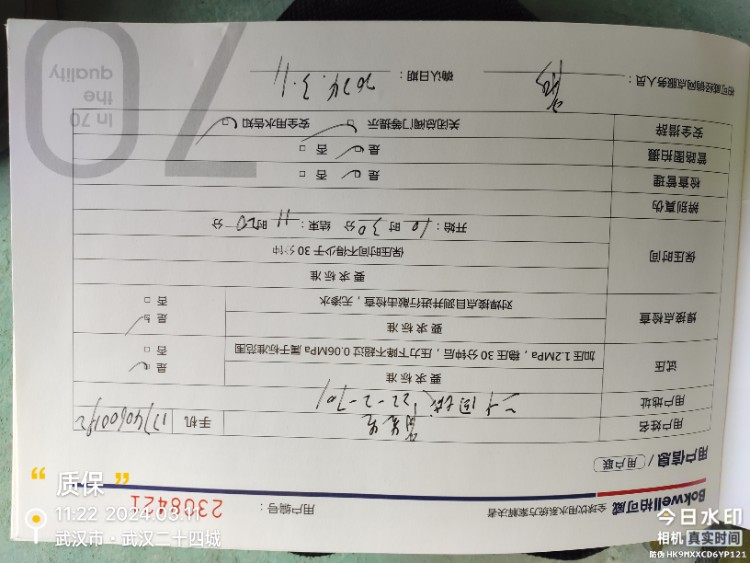 Bokwell柏可威
全球饮用水系统方案解决者
用户编号： 2308421
用户信息 / 用户联
用户姓名
手机
用户地址 22-2-701
试压 要求标准
加压1.2MPa，稳压30分钟后，压力下降不超过0.06MPa属于标准范围
是 否
焊接点检查 要求标准
对焊接点目测并进行敲击检查，无渗水
是 否
保压时间 要求标准
保压时间不得少于30分钟
开始：10时30分 结束：11时20分
辨别真伪
检查管理 是 否
管路图拍摄 是 否
安全措辞 关闭总阀门等提示 安全用水告知
柏可威经销网点服务人员：
确认日期： 2024.3.11
In 70
the
quality
70
质保
11:22 2024.03.11
武汉市·武汉二十四城
今日水印
相机 真实时间
防伪 HK9MXXCD6YP121